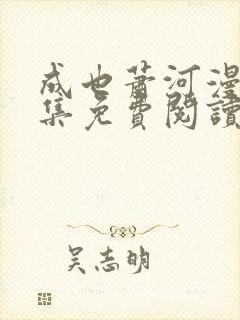 成也萧河漫
集免費閱讀
吴志明